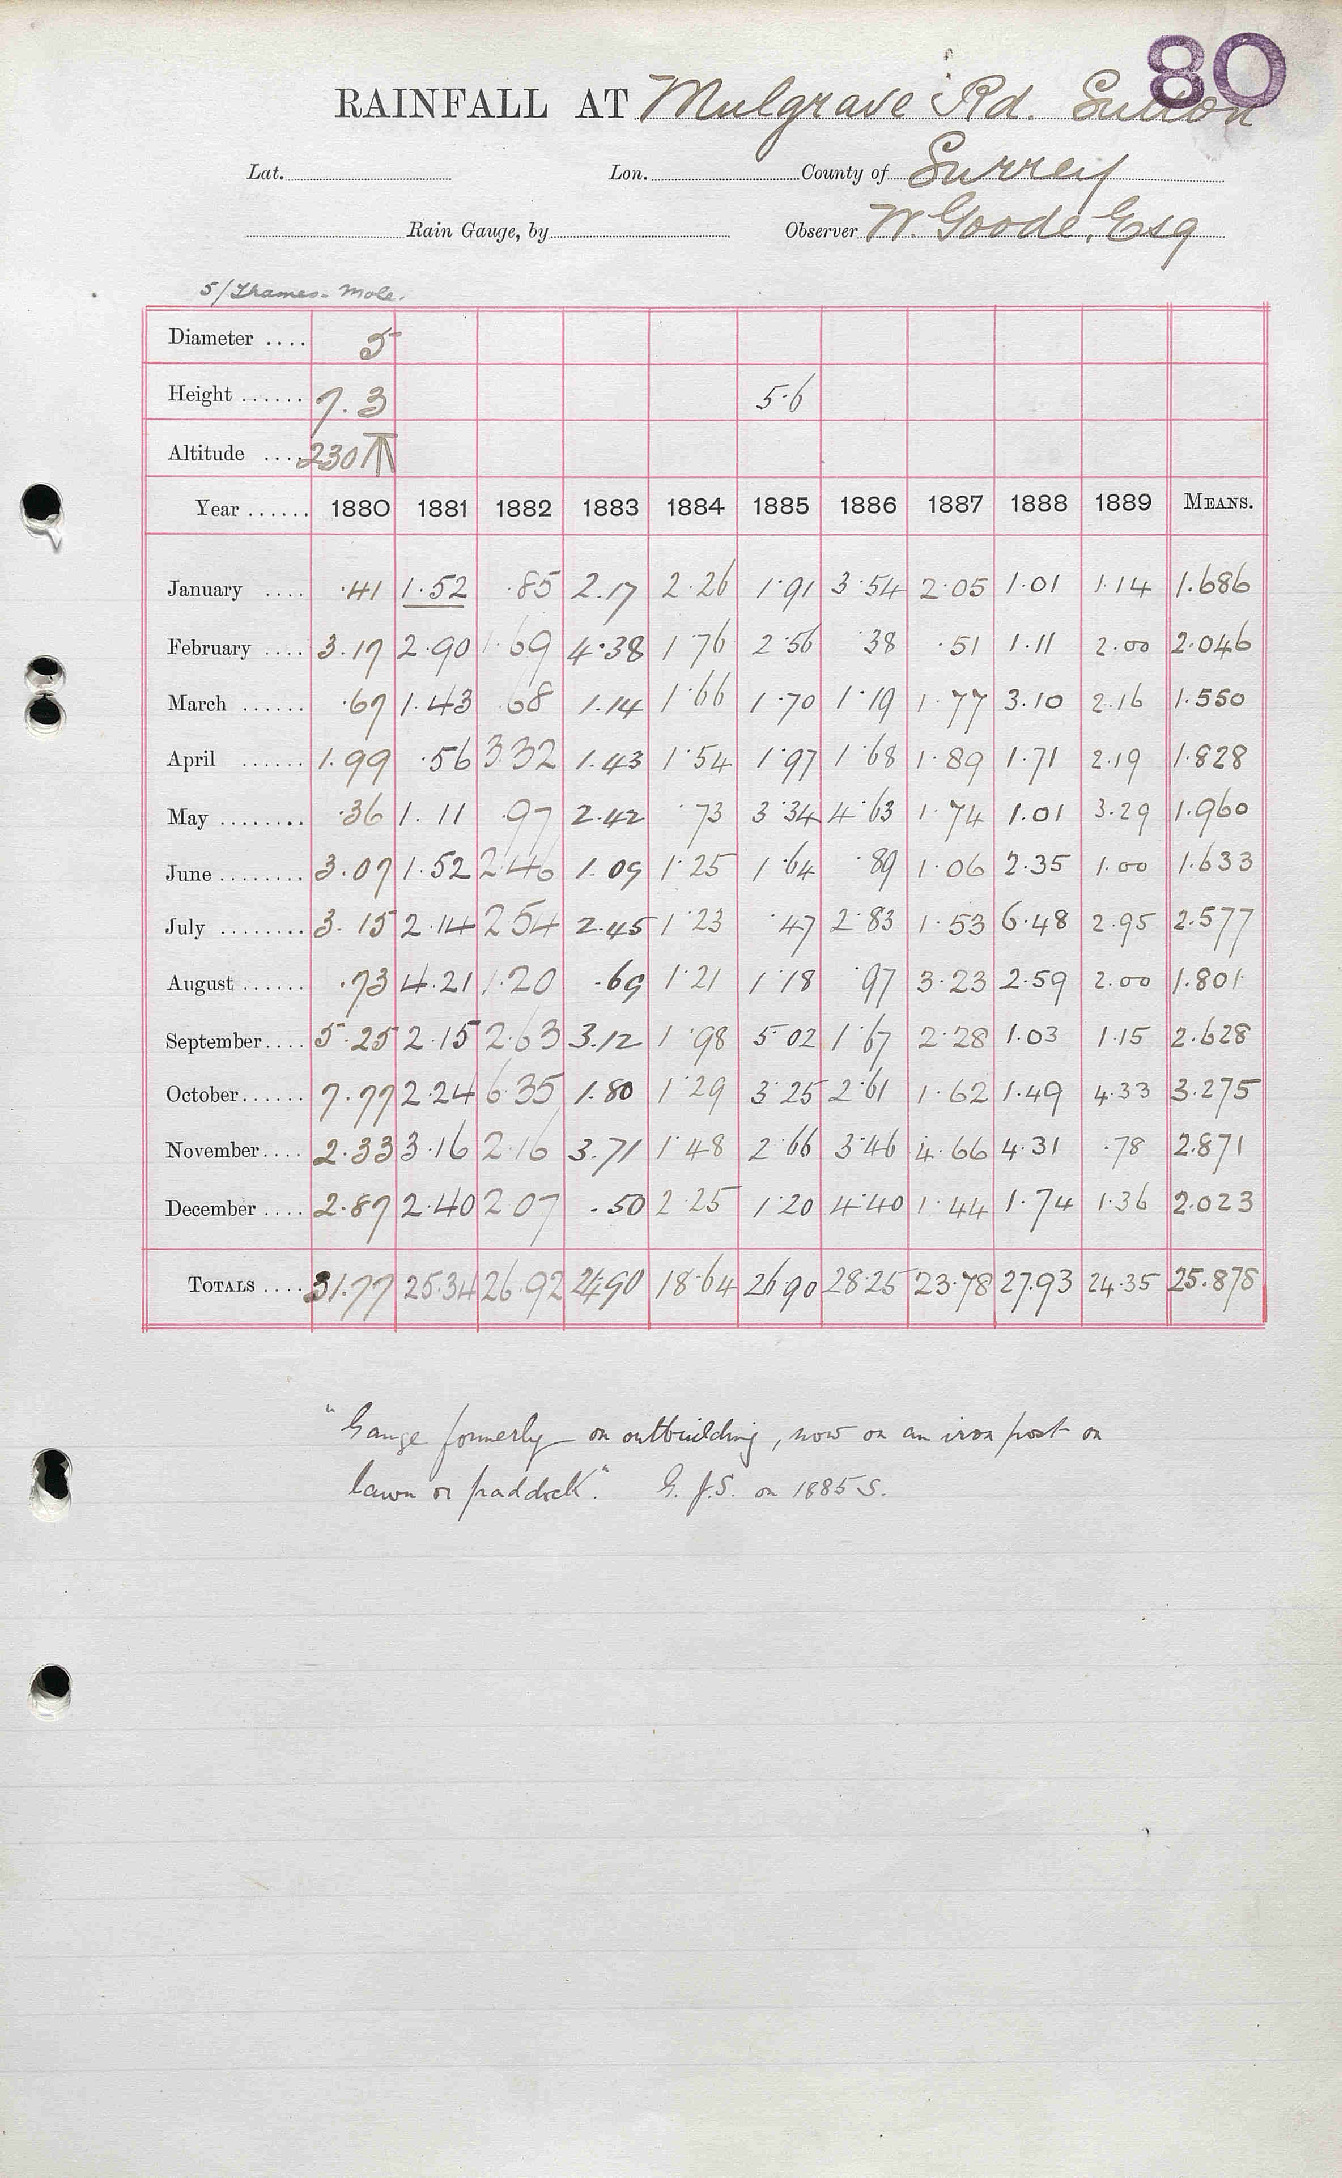 80
RAINFALL AT Mulgrave Rd. Sutton
Lat. Lon. County of Surrey
Rain Gauge, by Observer W. Goode, Esq
5/Thames-Mole.
Diameter .... 5
Height ...... 7.3 5.6
Altitude .... 230
Year ...... 1880 1881 1882 1883 1884 1885 1886 1887 1888 1889 MEANS.
January .... .41 1.52 .85 2.17 2.26 1.91 3.54 2.05 1.01 1.14 1.686
February .... 3.17 2.90 1.69 4.38 1.76 2.56 .38 .51 1.11 2.00 2.046
March ...... .67 1.43 .68 1.14 1.66 1.70 1.19 1.77 3.10 2.16 1.550
April ...... 1.99 .56 3.32 1.43 1.54 1.97 1.68 1.89 1.71 2.19 1.828
May ........ .36 1.11 .97 2.42 .73 3.34 4.63 1.74 1.01 3.29 1.960
June ........ 3.07 1.52 2.46 1.09 1.25 1.64 .89 1.06 2.35 1.00 1.633
July ........ 3.15 2.14 2.54 2.45 1.23 .47 2.83 1.53 6.48 2.95 2.577
August ...... .73 4.21 1.20 .69 1.21 1.18 .97 3.23 2.59 2.00 1.801
September .... 5.25 2.15 2.63 3.12 1.98 5.02 1.67 2.28 1.03 1.15 2.628
October ...... 7.77 2.24 6.35 1.80 1.29 3.25 2.61 1.62 1.49 4.33 3.275
November .... 2.33 3.16 2.16 3.71 1.48 2.66 3.46 4.66 4.31 .78 2.871
December .... 2.87 2.40 2.07 .50 2.25 1.20 4.40 1.44 1.74 1.36 2.023
TOTALS .... 31.77 25.34 26.92 24.90 18.64 26.90 28.25 23.78 27.93 24.35 25.878
"Gauge formerly on outbuilding, now on an iron post on
lawn or paddock." G.J.S. on 1885 S.